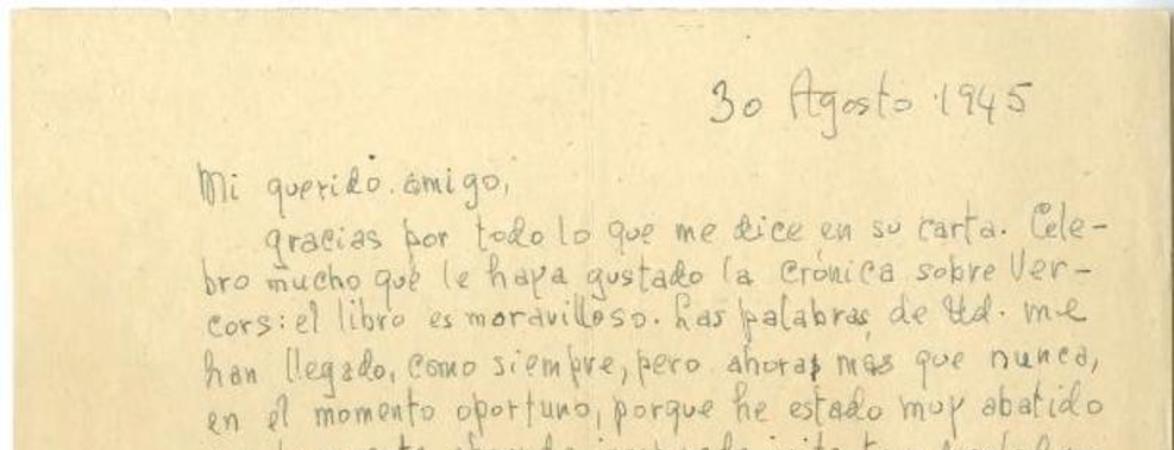 30 Agosto 1945
Mi querido amigo,
gracias por todo lo que me dice en su carta. Cele-
bro mucho que le haya gustado la crónica sobre Ver-
cors: el libro es maravilloso. Las palabras de Ud. me
han llegado, como siempre, pero ahora más que nunca,
en el momento oportuno, porque he estado muy abatido